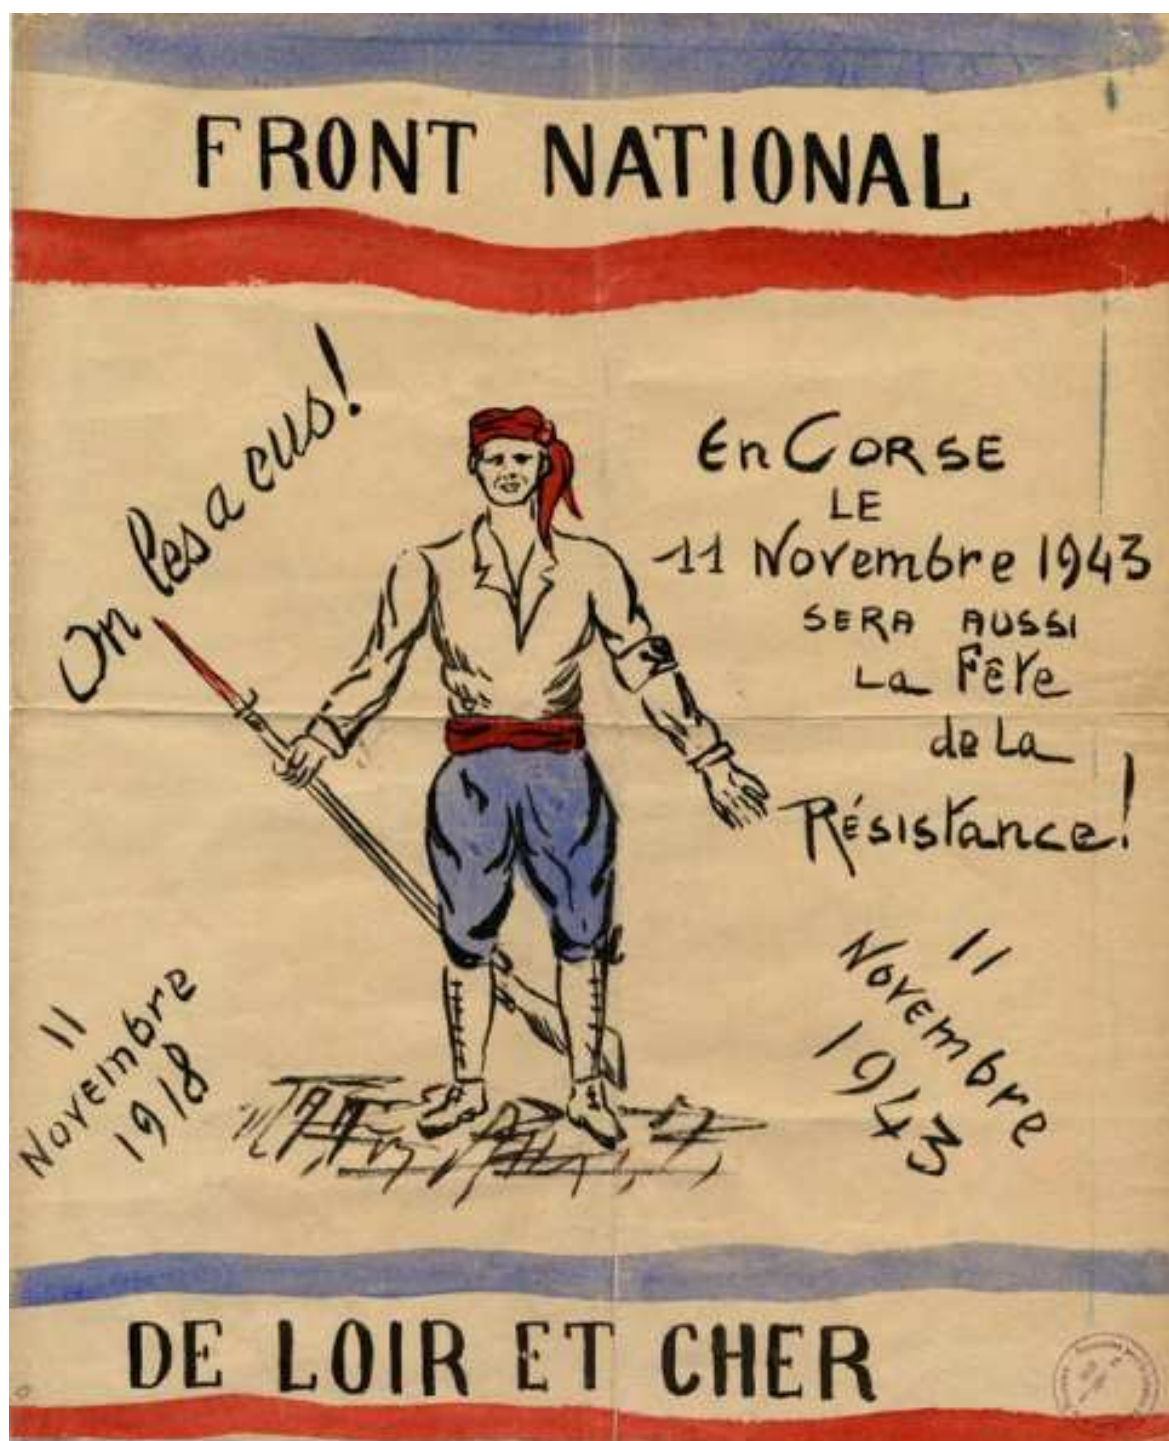 FRONT NATIONAL
On les a eus!
En CORSE
LE
11 Novembre 1943
SERA AUSSI
La Fête
de La
Résistance!
11
Novembre
1918
11
Novembre
1943
DE LOIR ET CHER